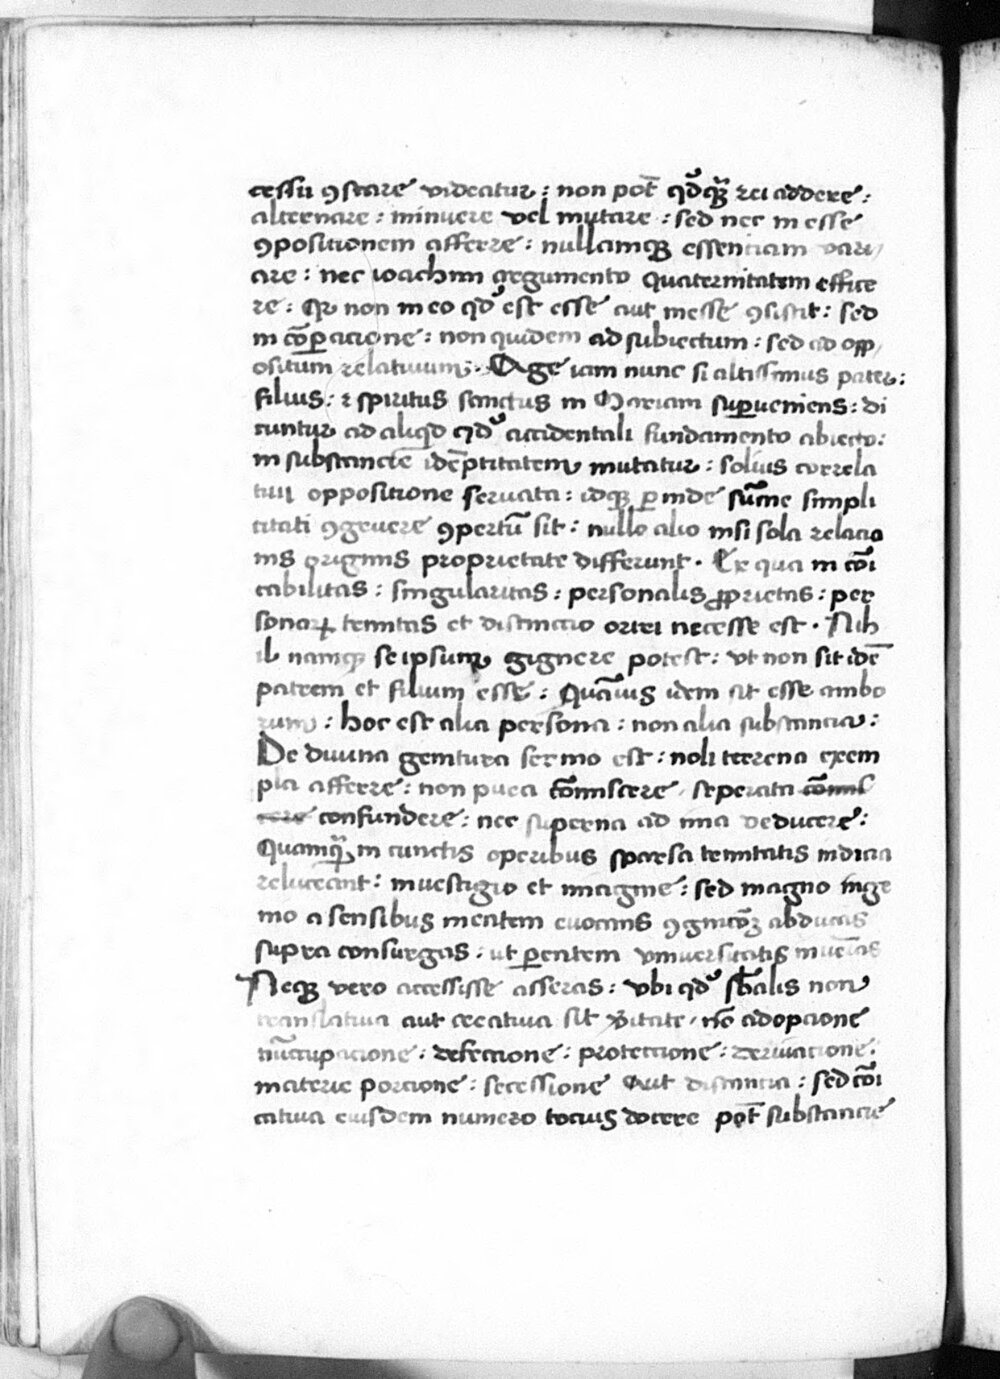 cessu ꝯstare videatur : non pot̄ qd̓qꝫ̄ rei addere :
alternare : minuere vel mutare : sed nec inesse
ꝯpositionem afferre : nullamqꝫ essentiam vari
are : nec ioachim argumento quaternitatem effice
re : Qr non in eo qd̓ est esse aut inesse ꝯsistit : sed
in cōꝑacione : non quidem ad subiectum : sed ad opp
ositum relatiuum . Age iam nunc si altissimus pater :
filius : ⁊ spiritus sanctus in Mariam suꝑueniens : di
cuntur ad aliqd qd̓ accidentali fundamento abiecto :
in substancie idēptitatem mutatur : solius correla
tiui oppositione seruata : idqꝫ ꝑinde sūme simpli
citati ꝯgruere ꝯpertū sit : nullo alio nisi sola relacio
nis originis proprietate differunt . Ex qua in cōi
cabilitas : singularitas : personalis ꝓprietas : per
sonaꝝ trinitas et distinctio oriri necesse est . Nih
il namqꝫ se ipsum gignere potest : vt non sit idē
patrem et filium esse : Quāuis idem sit esse ambo
rum : hoc est alia persona : non alia substancia :
De diuina genitura sermo est : noli terrena exem
pla afferre : non pura cōmiscere seperata cōmis
cere confundere : nec superna ad ima deducere :
Quamqꝫ̄ in cunctis operibus sparsa trinitatis indicia
reluceant : inuestigio et imagine : sed magno inge
nio a sensibus mentem euocans ꝯgnicōꝫ abducas
supra consurgas : ut ꝑentem vniuersitatis inuenias
Neqꝫ vero accessisse asseras : vbi qd̓ sb̄alis non
translatiua aut creatiua sit v̓itate nō adopcione
nūcupacione : defectione : protectione : deriuacione :
materie porcione : secessione Aut distancia : sed cōi
catiua eiusdem numero tocius docere pot̄ substancie